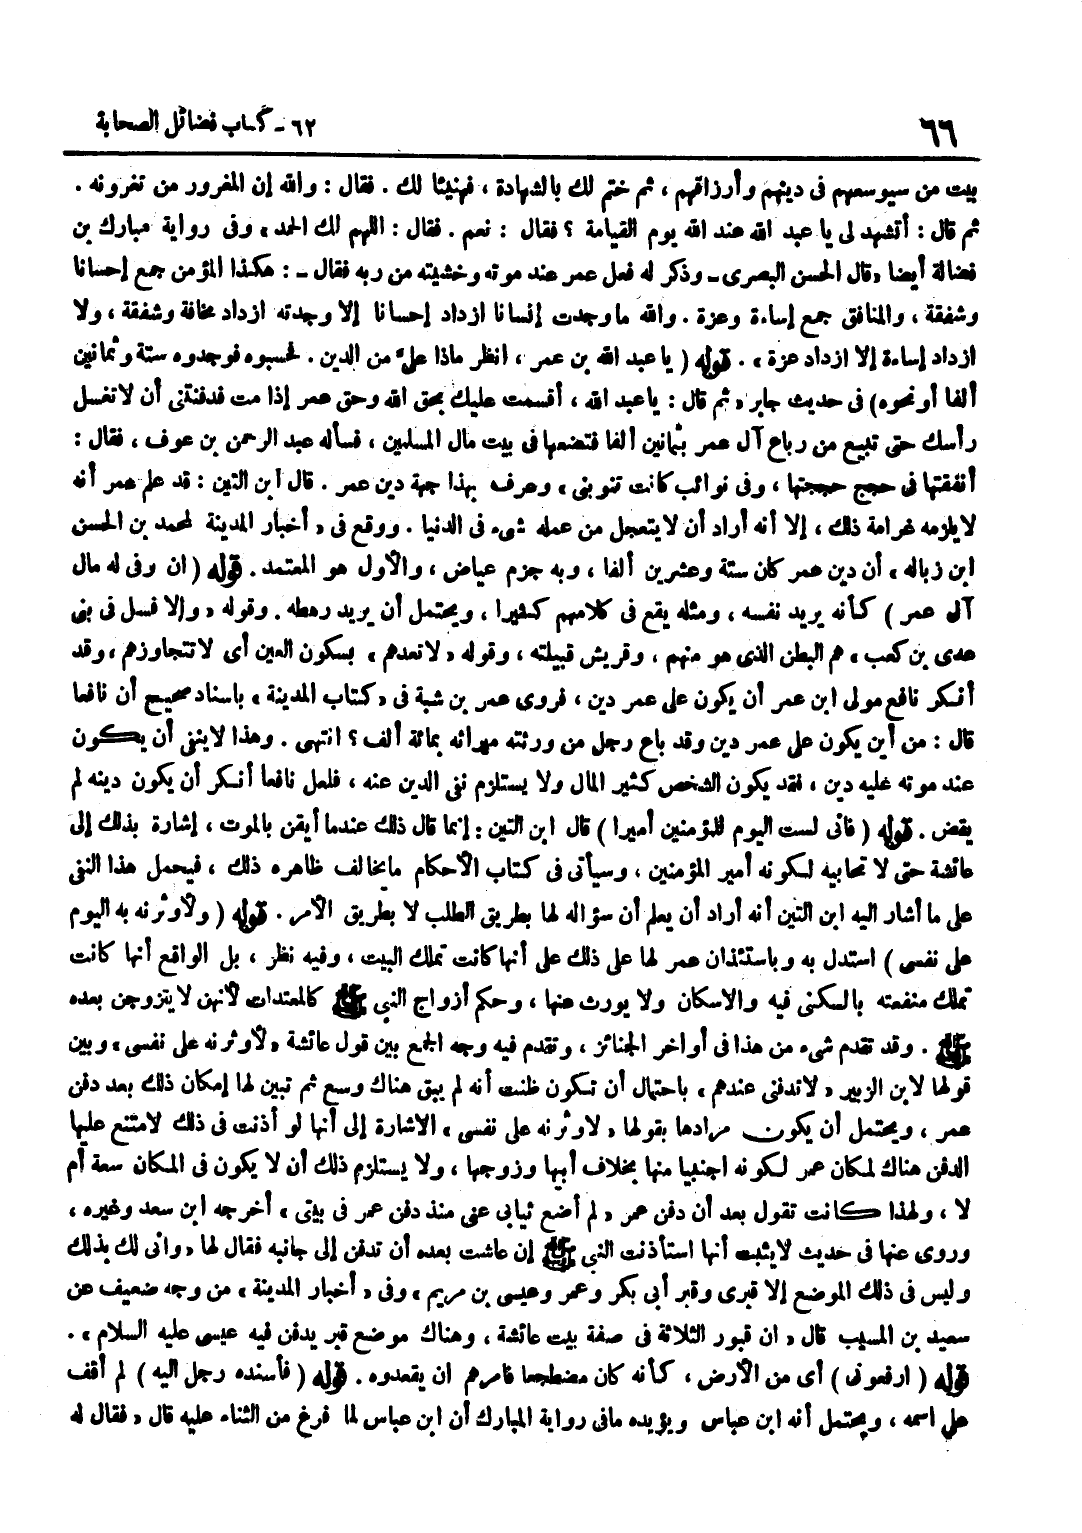 ٦٦
٦٢ - كتاب فضائل الصحابة
بيت من سيوسعهم فى دينهم وأرزاقهم ، ثم ختم لك بالشهادة ، فهنيئا لك . فقال : والله إن المغرور من تغرونه .
ثم قال : أتشهد لى يا عبد الله عند الله يوم القيامة ؟ فقال : نعم . فقال : اللهم لك الحمد ، وفى رواية مبارك بن
فضالة أيضا « قال الحسن البصرى ـ وذكر له فعل عمر عند موته وخشيته من ربه فقال ـ : هكذا المؤمن جمع إحسانا
وشفقة ، والمنافق جمع إساءة وعزة . والله ما وجدت إنسانا ازداد إحسانا إلا وجدته ازداد مخافة وشفقة ، ولا
ازداد إساءة إلا ازداد عزة » . قوله ( يا عبد الله بن عمر ، انظر ماذا علىّ من الدين . فحسبوه فوجدوه ستة وثمانين
ألفا أو نحوه) فى حديث جابر « ثم قال : يا عبد الله ، أقسمت عليك بحق الله وحق عمر إذا مت فدفنتنى أن لا تغسل
رأسك حتى تبيع من رباع آل عمر بثمانين ألفا فتضعها فى بيت مال المسلمين ، فسأله عبد الرحمن بن عوف ، فقال :
أنفقتها فى حجج حججتها ، وفى نوائب كانت تنوبنى » وعرف بهذا جهة دين عمر . قال ابن التين : قد علم عمر أنه
لا يلزمه غرامة ذلك ، إلا أنه أراد أن لا يتعجل من عمله شىء فى الدنيا . ووقع فى « أخبار المدينة لمحمد بن الحسن
ابن زباله » أن دين عمر كان ستة وعشرين ألفا ، وبه جزم عياض ، والأول هو المعتمد . قوله ( ان وفى له مال
آل عمر ) كأنه يريد نفسه ، ومثله يقع فى كلامهم كثيرا ، ويحتمل أن يريد رهطه . وقوله « وإلا فسل فى بنى
عدى بن كعب » هم البطن الذى هو منهم ، وقريش قبيلته ، وقوله « لا تعدهم » بسكون العين أى لا تتجاوزهم ، وقد
أنكر نافع مولى ابن عمر أن يكون على عمر دين ، فروى عمر بن شبة فى « كتاب المدينة » باسناد صحيح أن نافعا
قال : من أين يكون على عمر دين وقد باع رجل من ورثته ميراثه بمائة ألف ؟ انتهى . وهذا لا ينفى أن يكون
عند موته عليه دين ، فقد يكون الشخص كثير المال ولا يستلزم نفى الدين عنه ، فلعل نافعا أنكر أن يكون دينه لم
يقض . قوله ( فانى لست اليوم للمؤمنين أميرا ) قال ابن التين : إنما قال ذلك عندما أيقن بالموت ، إشارة بذلك إلى
عائشة حتى لا تحابيه لكونه أمير المؤمنين ، وسيأتى فى كتاب الأحكام ما يخالف ظاهره ذلك ، فيحمل هذا النفى
على ما أشار اليه ابن التين أنه أراد أن يعلم أن سؤاله لها بطريق الطلب لا بطريق الأمر . قوله ( ولأوثرنه به اليوم
على نفسى ) استدل به وباستئذان عمر لها على ذلك على أنها كانت تملك البيت ، وفيه نظر ، بل الواقع أنها كانت
تملك منفعته بالسكنى فيه والاسكان ولا يورث عنها ، وحكم أزواج النبى ﷺ كالمعتدات لأنهن لا يتزوجن بعده
ﷺ . وقد تقدم شىء من هذا فى أواخر الجنائز ، وتقدم فيه وجه الجمع بين قول عائشة « لأوثرنه على نفسى » وبين
قولها لابن الزبير « لا تدفنى عندهم » باحتمال أن تكون ظنت أنه لم يبق هناك وسع ثم تبين لها إمكان ذلك بعد دفن
عمر ، ويحتمل أن يكون مرادها بقولها « لأوثرنه على نفسى » الاشارة إلى أنها لو أذنت فى ذلك لامتنع عليها
الدفن هناك لمكان عمر لكونه اجنبيا منها بخلاف أبيها وزوجها ، ولا يستلزم ذلك أن لا يكون فى المكان سعة أم
لا ، ولهذا كانت تقول بعد أن دفن عمر « لم أضع ثيابى عنى منذ دفن عمر فى بيتى » أخرجه ابن سعد وغيره ،
وروى عنها فى حديث لا يثبت أنها استأذنت النبى ﷺ إن عاشت بعده أن تدفن إلى جانبه فقال لها « وانى لك بذلك
وليس فى ذلك الموضع إلا قبرى وقبر أبى بكر وعمر وعيسى بن مريم » وفى « أخبار المدينة » من وجه ضعيف عن
سعيد بن المسيب قال « ان قبور الثلاثة فى صفة بيت عائشة ، وهناك موضع قبر يدفن فيه عيسى عليه السلام » .
قوله ( ارفعونى ) أى من الأرض ، كأنه كان مضطجعا فامرهم ان يقعدوه . قوله ( فأسنده رجل اليه ) لم أقف
على اسمه ، ويحتمل أنه ابن عباس ويؤيده ما فى رواية المبارك أن ابن عباس لما فرغ من الثناء عليه قال « فقال له